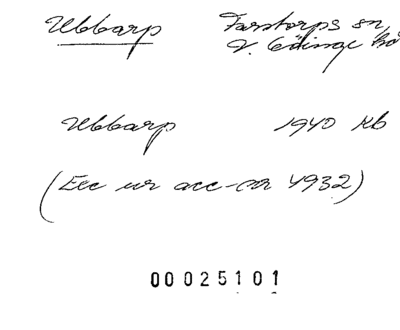 Ubbarp Farstorps sn,
V. Göinge hd
Ubbarp 1940 Kb
(Exc ur acc-nr 4932)
00025101